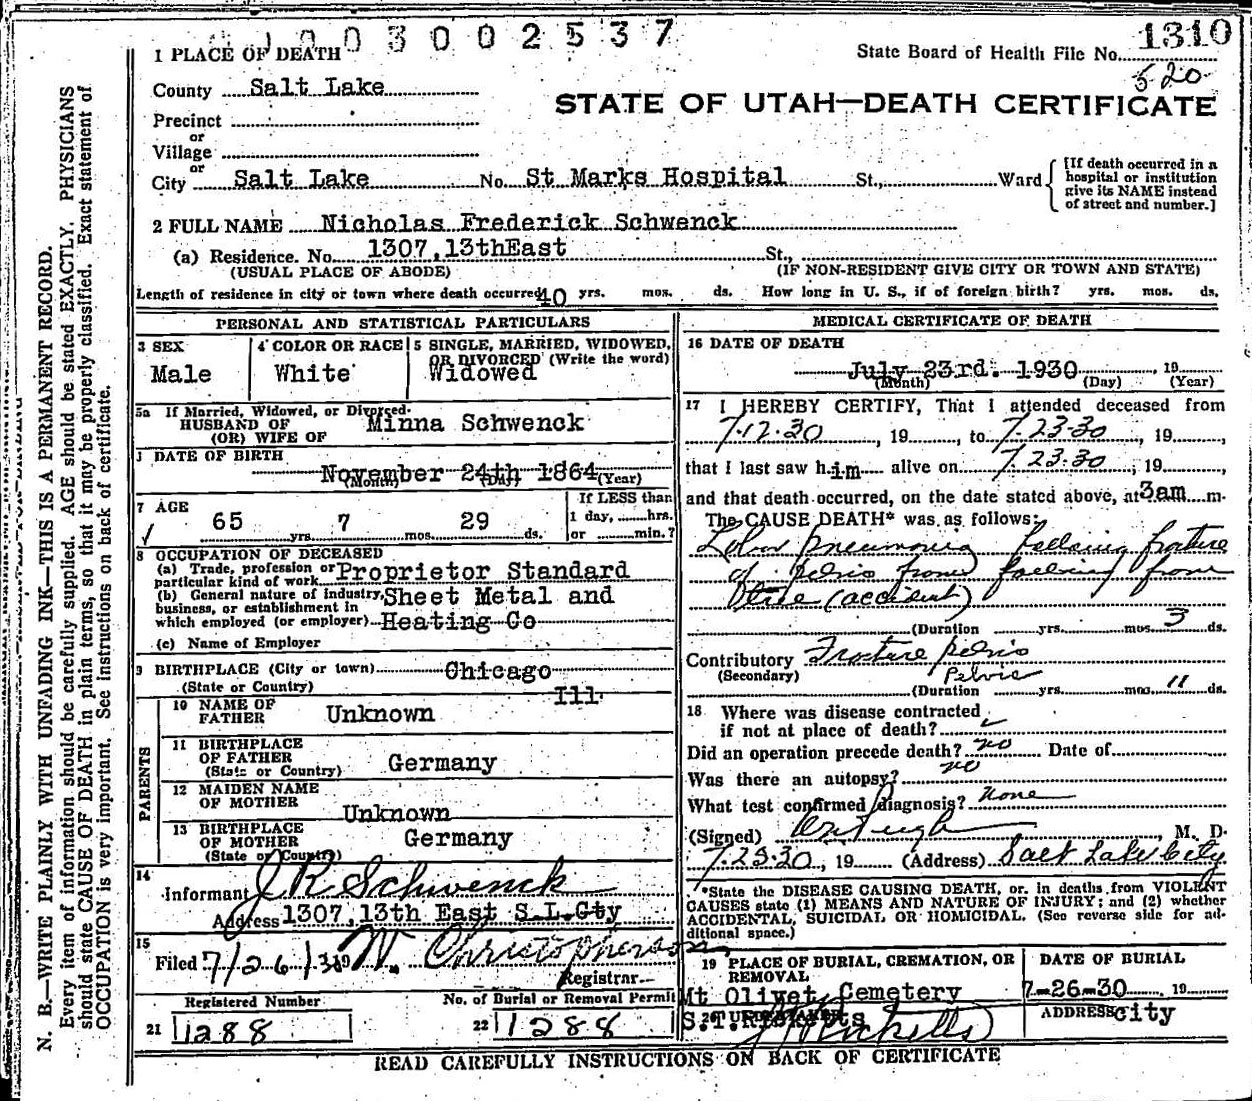 3002537
1310
1 PLACE OF DEATH
State Board of Health File No.
520
County Salt Lake
STATE OF UTAH—DEATH CERTIFICATE
Precinct
or
Village
or
City Salt Lake No. St Marks Hospital St., Ward
[If death occurred in a hospital or institution give its NAME instead of street and number.]
2 FULL NAME Nicholas Frederick Schwenck
(a) Residence. No. 1307,13thEast St.,
(USUAL PLACE OF ABODE) (IF NON-RESIDENT GIVE CITY OR TOWN AND STATE)
Length of residence in city or town where death occurred 40 yrs. mos. ds. How long in U. S., if of foreign birth? yrs. mos. ds.
PERSONAL AND STATISTICAL PARTICULARS
3 SEX
Male
4 COLOR OR RACE
White
5 SINGLE, MARRIED, WIDOWED, OR DIVORCED (Write the word)
Widowed
5a If Married, Widowed, or Divorced
HUSBAND OF
(OR) WIFE OF Minna Schwenck
DATE OF BIRTH
November 24th 1864
(Month) (Day) (Year)
7 AGE
65 yrs. 7 mos. 29 ds.
If LESS than
1 day, hrs.
or min.?
8 OCCUPATION OF DECEASED
(a) Trade, profession or
particular kind of work Proprietor Standard
(b) General nature of industry,
business, or establishment in
which employed (or employer) Sheet Metal and
Heating Co
(c) Name of Employer
9 BIRTHPLACE (City or town) Chicago
(State or Country) Ill.
PARENTS
10 NAME OF FATHER Unknown
11 BIRTHPLACE OF FATHER (State or Country) Germany
12 MAIDEN NAME OF MOTHER Unknown
13 BIRTHPLACE OF MOTHER (State or Country) Germany
14 Informant J R Schwenck
Address 1307,13th East S.L.Cty
15 Filed 7/26/30 W. Christopherson
Registrar
Registered Number
21 1288
No. of Burial or Removal Permit
22 1288
MEDICAL CERTIFICATE OF DEATH
16 DATE OF DEATH
July 23rd. 1930 19
(Month) (Day) (Year)
17 I HEREBY CERTIFY, That I attended deceased from
7.12.30, 19, to 7.23.30, 19,
that I last saw him alive on 7.23.30, 19,
and that death occurred, on the date stated above, at 3am m.
The CAUSE DEATH* was as follows:
Lobar pneumonia following fracture
of pelvis from falling from
tree (accident)
(Duration yrs. mos. 3 ds.
Contributory Fracture pelvis
(Secondary) Pelvis
(Duration yrs. mos. 11 ds.
18 Where was disease contracted
if not at place of death?
Did an operation precede death? no Date of
Was there an autopsy? no
What test confirmed diagnosis? None
(Signed) M. D.
7.23.30, 19 (Address) Salt Lake City
*State the DISEASE CAUSING DEATH, or, in deaths from VIOLENT
CAUSES state (1) MEANS AND NATURE OF INJURY; and (2) whether
ACCIDENTAL, SUICIDAL OR HOMICIDAL. (See reverse side for ad-
ditional space.)
19 PLACE OF BURIAL, CREMATION, OR REMOVAL
Mt Olivet Cemetery
DATE OF BURIAL
7-26-30 19
20 UNDERTAKER
S.T.Ricketts
ADDRESS city
READ CAREFULLY INSTRUCTIONS ON BACK OF CERTIFICATE
N. B.—WRITE PLAINLY WITH UNFADING INK—THIS IS A PERMANENT RECORD.
Every item of information should be carefully supplied. AGE should be stated EXACTLY. PHYSICIANS
should state CAUSE OF DEATH in plain terms, so that it may be properly classified. Exact statement of
OCCUPATION is very important. See instructions on back of certificate.